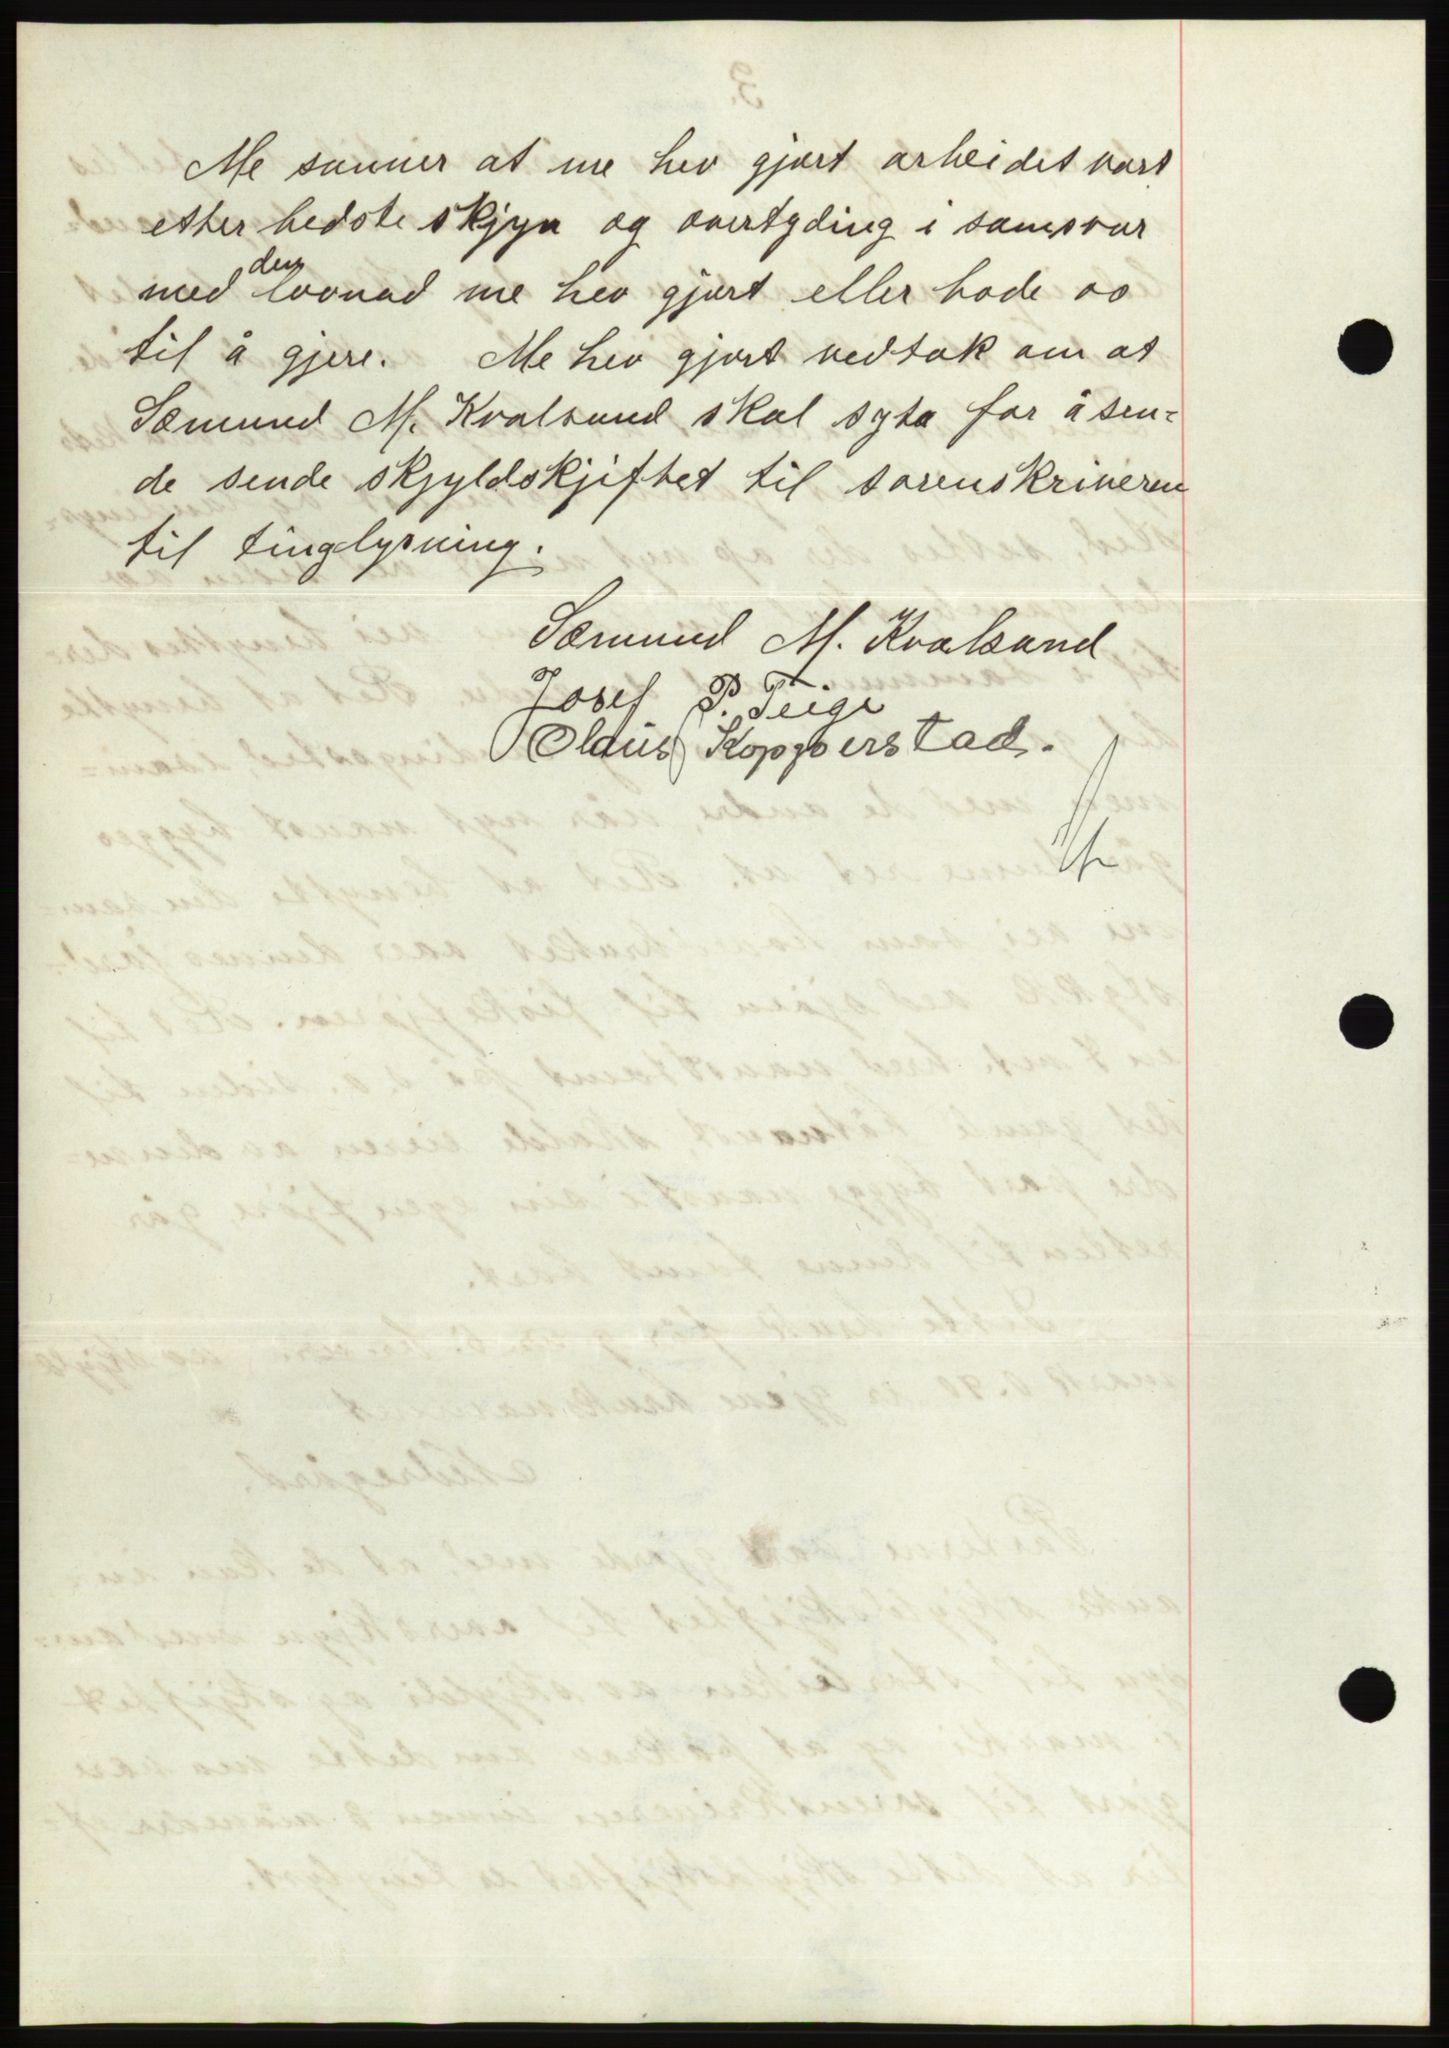 Me sanner at me hev gjort arbeidet vart
etter bedste skjyn og overtyding i samsvar
med den lovnad me hev gjort eller bode oss
til å gjere. Me hev gjort vedtak om at
Sæmund M. Kvalsund skal syta for å sen=
de sende skjyldskjiftet til sorenskriveren
til tinglysning.
Sæmund M. Kvalsund
Josef P. Teige
Olaus Kopperstad.